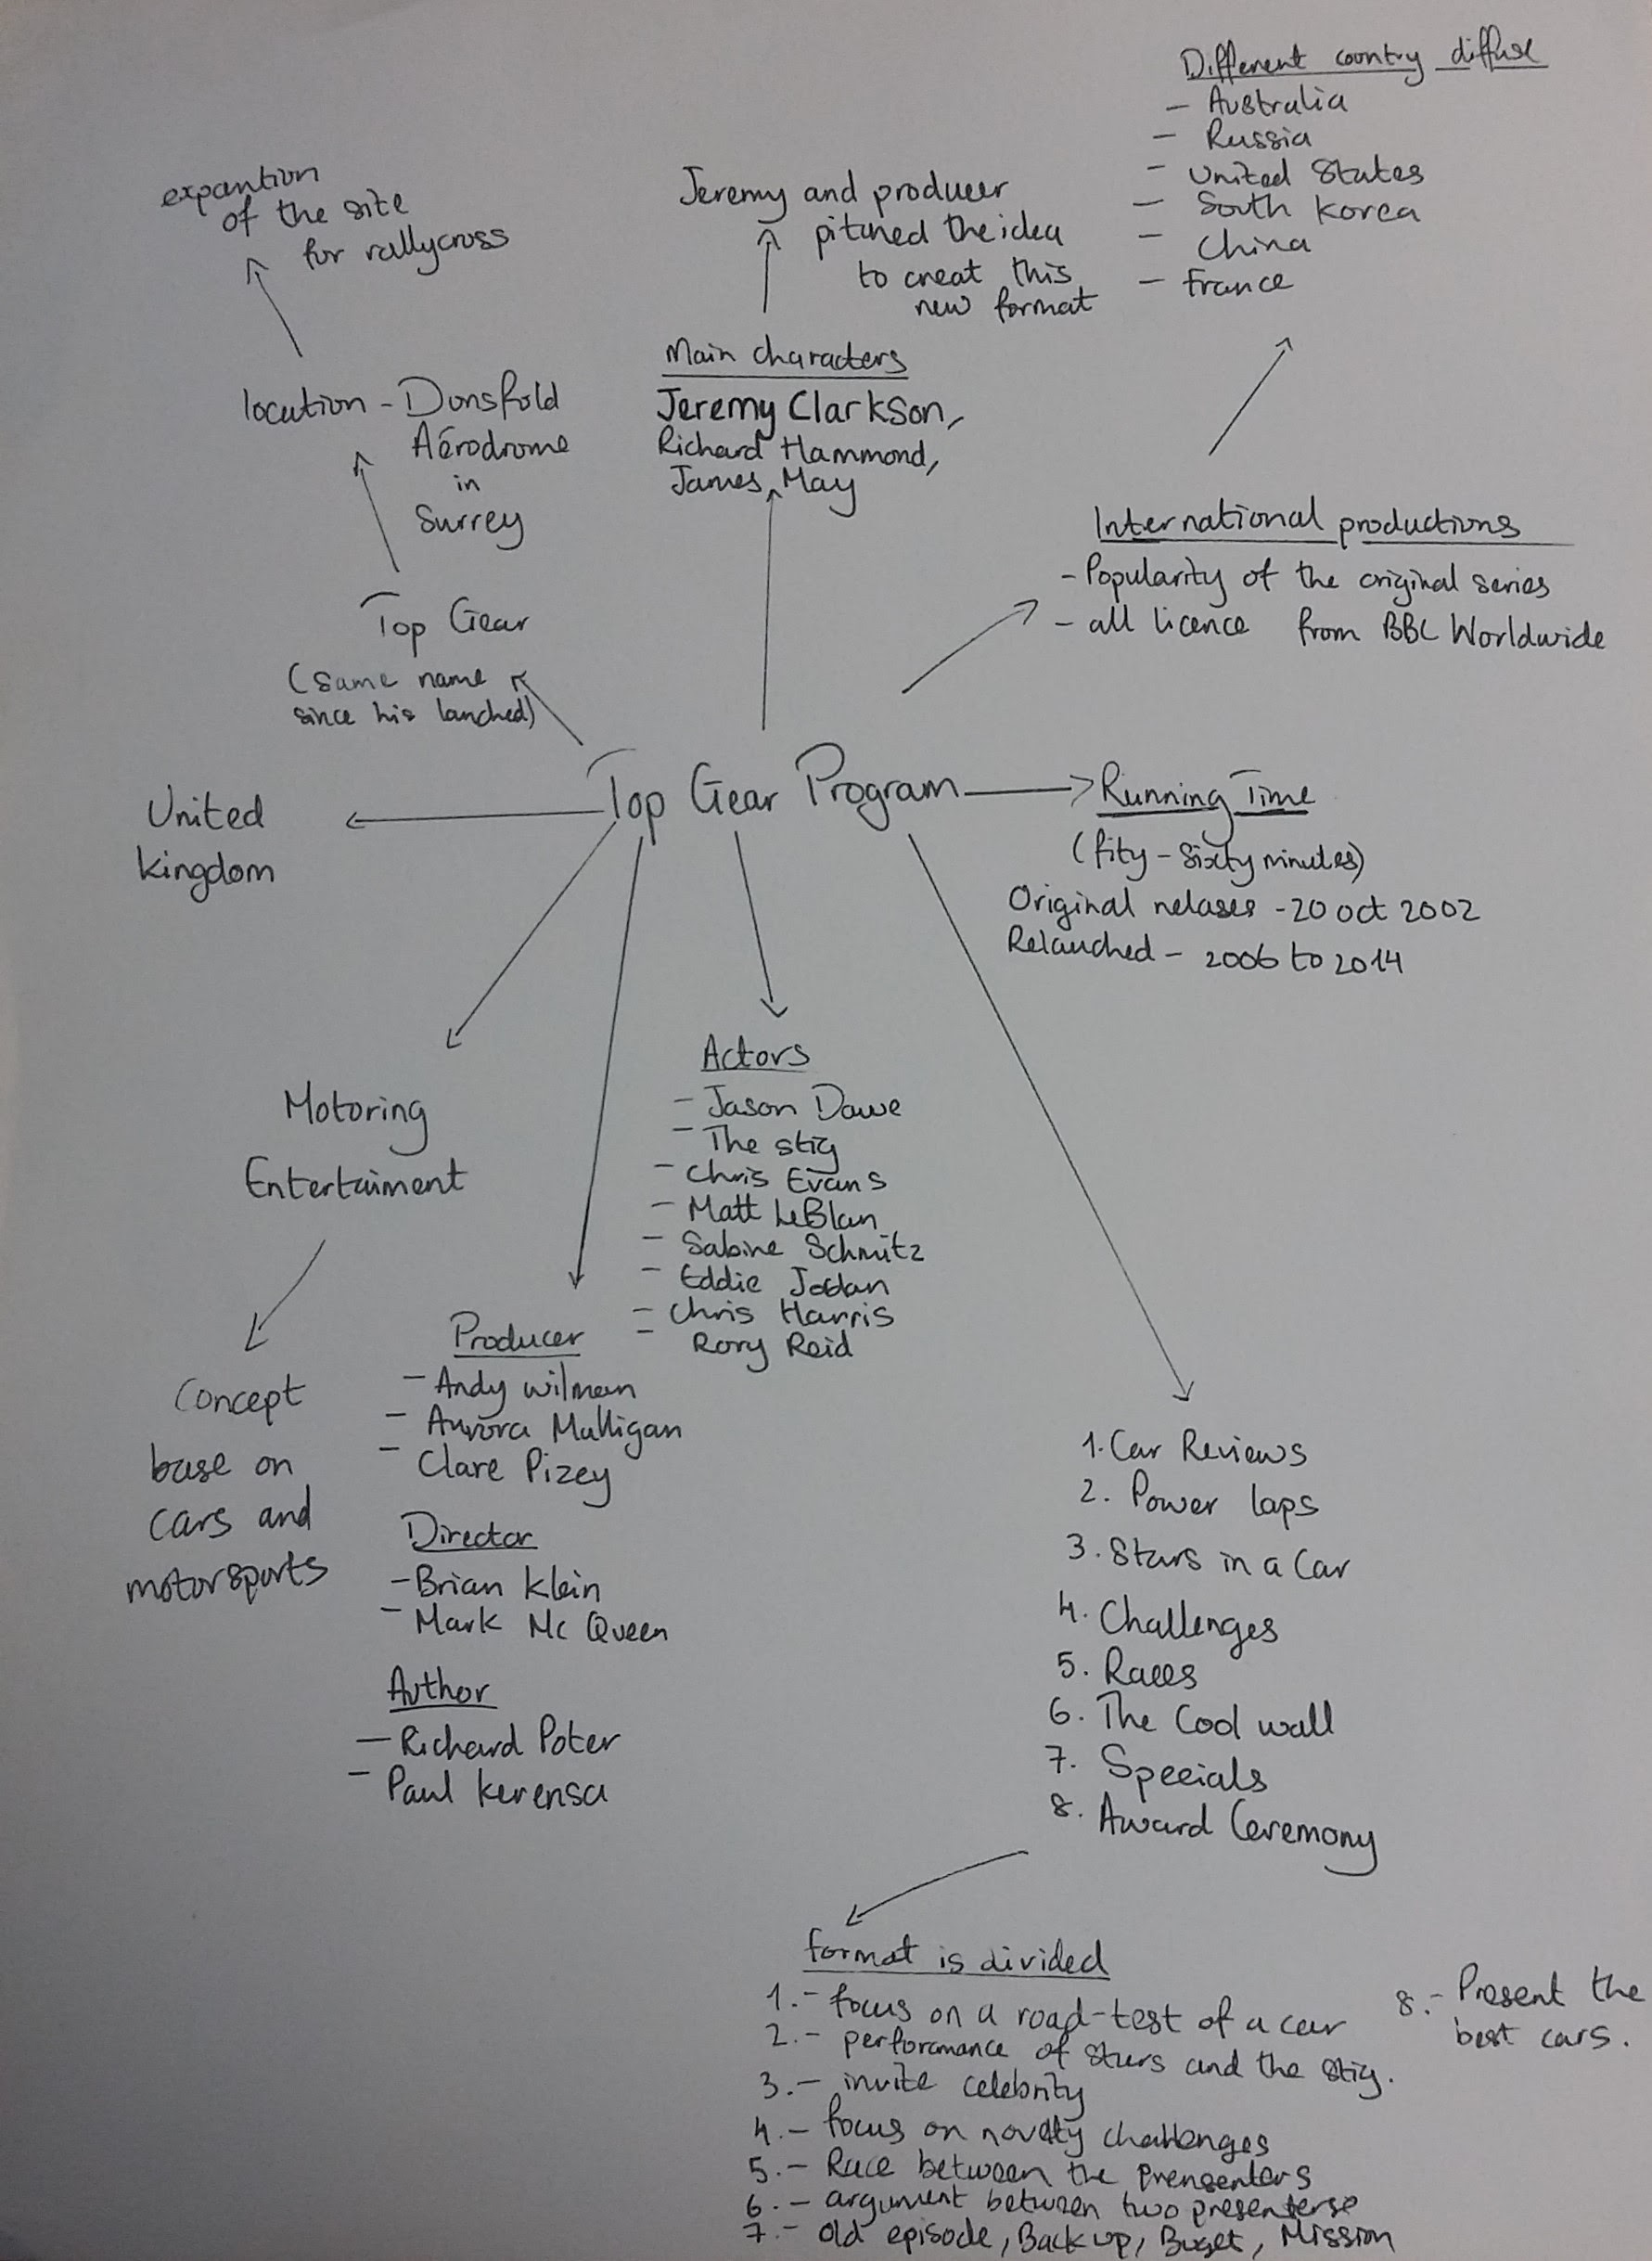 Different country diffuse
- Australia
- Russia
- United States
- South Korea
- China
- France
expantion
of the site
for rallycross
Jeremy and producer
pitched the idea
to creat this
new format
location - Dunsfold
Aérodrome
in
Surrey
Main characters
Jeremy Clarkson,
Richard Hammond,
James May
International productions
- Popularity of the original series
- all licence from BBC Worldwide
Top Gear
(same name
since his lanched)
Top Gear Program
United
kingdom
Running Time
(fity - sixty minutes)
Original relases - 20 oct 2002
Relauched - 2006 to 2014
Motoring
Entertaiment
Concept
base on
cars and
motorsports
Actors
- Jason Dawe
- The stig
- Chris Evans
- Matt LeBlan
- Sabine Schmitz
- Eddie Jordan
- Chris Harris
- Rory Reid
Producer
- Andy wilman
- Aurora Mulligan
- Clare Pizey
Director
- Brian Klein
- Mark Mc Queen
Author
- Richard Poter
- Paul Kerensa
1. Car Reviews
2. Power laps
3. Stars in a Car
4. Challenges
5. Races
6. The Cool wall
7. Specials
8. Award Ceremony
format is divided
1.- focus on a road-test of a car
2.- performance of stars and the stig.
3.- invite celebrity
4.- focus on novelty challenges
5.- Race between the prensenters
6.- argument between two presenters
7.- old episode, Back up, Buget, Mission
8.- Present the
best cars.